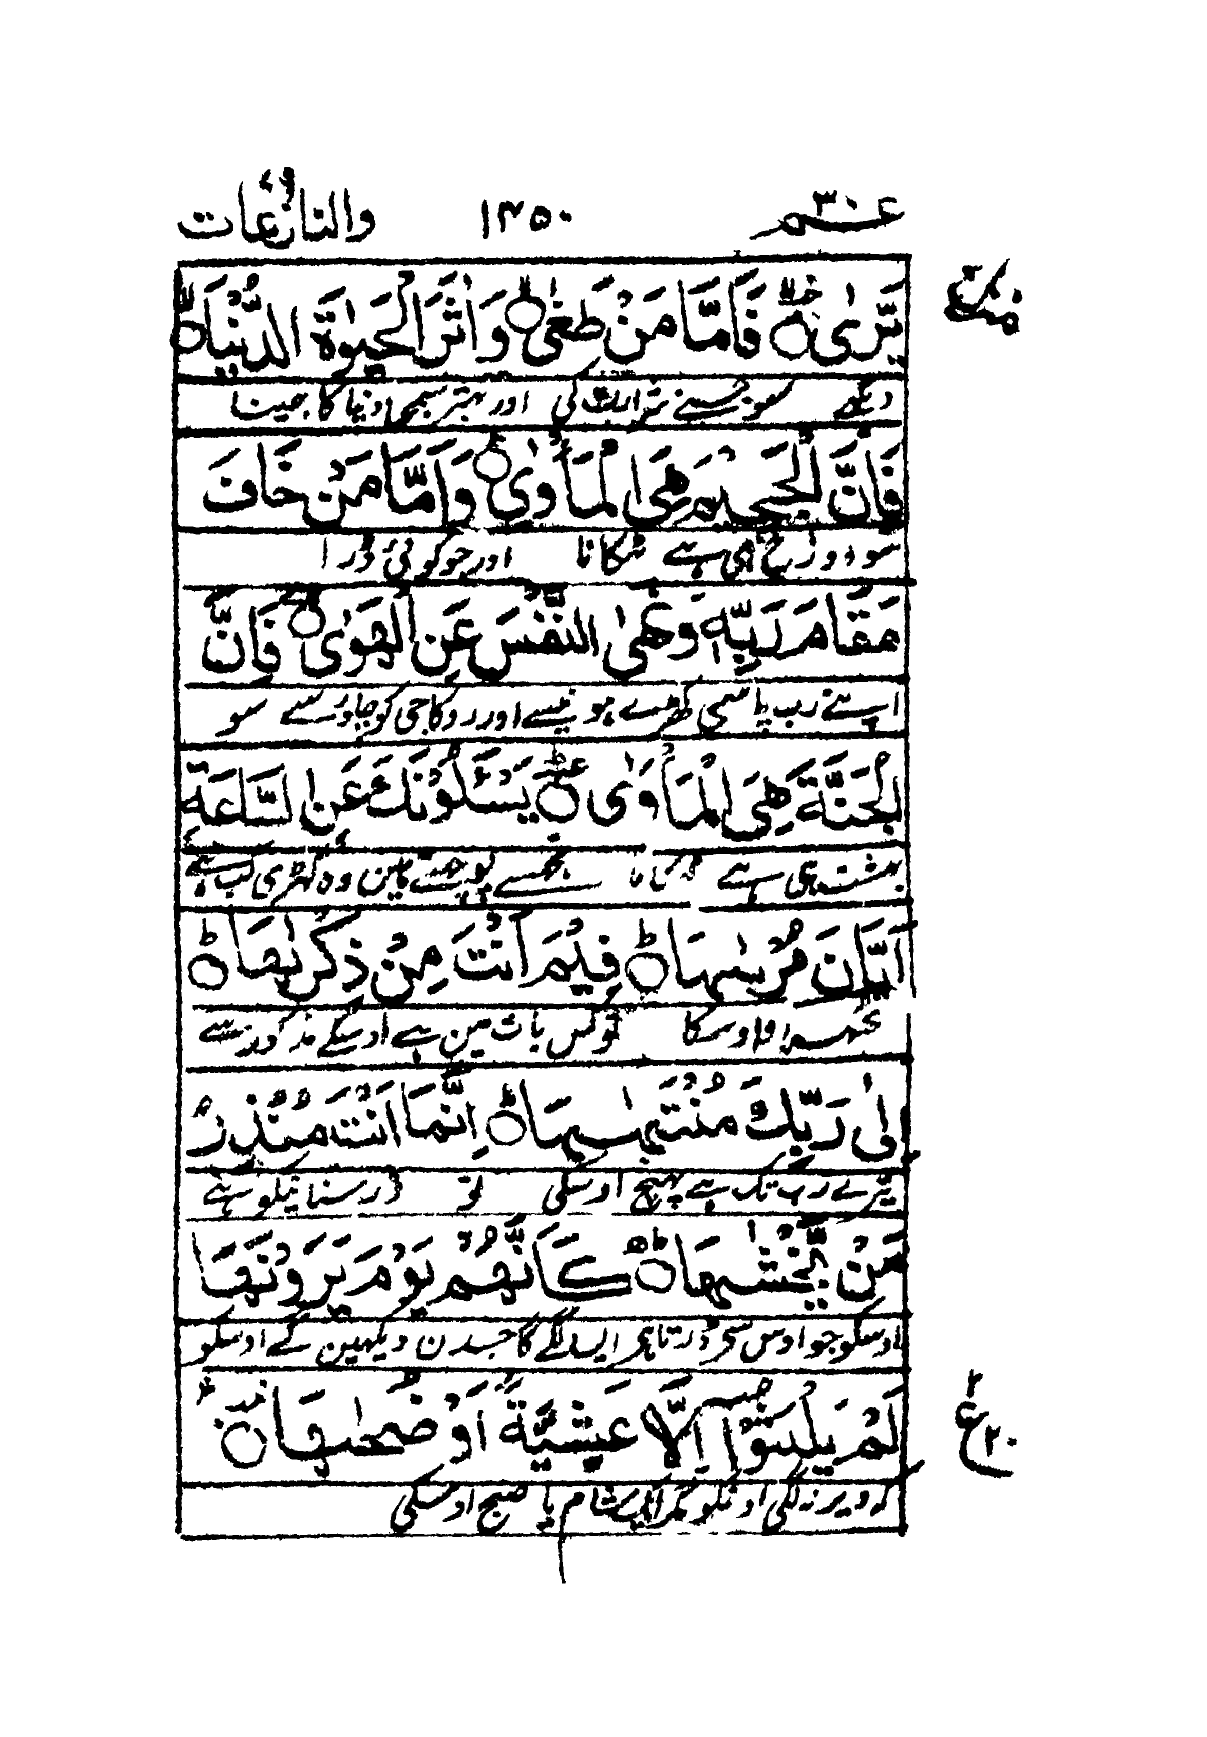 عـم ٣٠ ١٣٥٠ والنازعات ٧٩
يَّرٰى ۝ فَاَمَّا مَنْ طَغٰى ۝ وَاٰثَرَ الْحَيٰوةَ الدُّنْيَا ۝
دیکھے سو جسنے شرارت کی اور بہتر سمجھا دنیا کا جینا
فَاِنَّ الْجَحِيْمَ هِىَ الْمَأْوٰى ۝ وَاَمَّا مَنْ خَافَ
سو دوزخ ہی ہے ٹھکانا اور جو کوئی ڈرا
مَقَامَ رَبِّهٖ وَنَهَى النَّفْسَ عَنِ الْهَوٰى ۝ فَاِنَّ
اپنے رب پاس کھڑے ہونیسے اور روکا جی کو چاؤ سے سو
الْجَنَّةَ هِىَ الْمَأْوٰى ۝ يَسْـَٔلُوْنَكَ عَنِ السَّاعَةِ
بہشت ہی ہے ٹھکانا تجھسے پوچھتے ہین وہ گھڑی کب ہے
اَيَّانَ مُرْسٰىهَا ۝ فِيْمَ اَنْتَ مِنْ ذِكْرٰىهَا ۝
ٹھہراؤ اوسکا تو کس بات مین ہے اوسکے مذکور سے
اِلٰى رَبِّكَ مُنْتَهٰىهَا ۝ اِنَّمَا اَنْتَ مُنْذِرُ
تیرے رب تک ہے پہنچ اوسکی تو ڈر سنانیکو ہے
مَنْ يَّخْشٰىهَا ۝ كَاَنَّهُمْ يَوْمَ يَرَوْنَهَا
اوسکو جو اوس سے ڈرتا ہے ایسا لگے گا جسدن دیکھین گے اوسکو
لَمْ يَلْبَثُوْٓا اِلَّا عَشِيَّةً اَوْ ضُحٰىهَا ۝
کہ دیر نہ لگی اونکو مگر ایک شام یا صبح اوسکی
ع